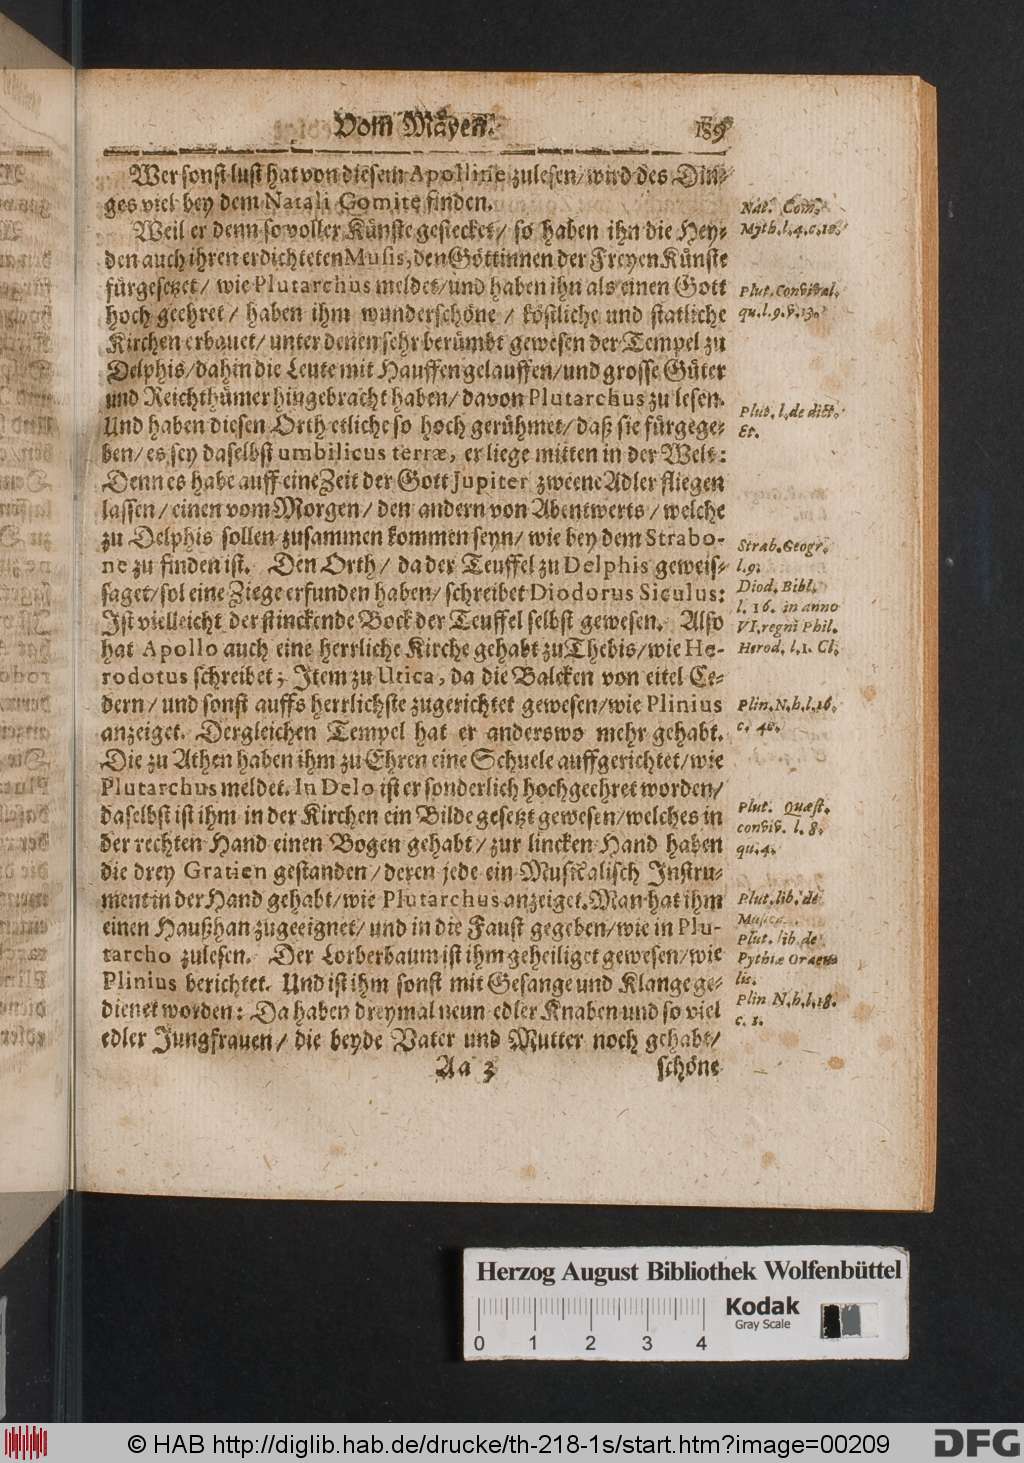 Vom Mäyen. 189
Wer sonst lust hat von diesem Apolline zulesen/ wird des Din-
ges viel bey dem Natali Comite finden.
Weil er denn so voller Künste gestecket/ so haben ihn die Hey-
den auch ihren erdichteten Musis, den Göttinnen der Freyen Künste
fürgesetzet/ wie Plutarchus meldet/ und haben ihn als einen Gott
hoch geehret/ haben ihm wunderschöne/ köstliche und statliche
Kirchen erbauet/ unter denen sehr berümbt gewesen der Tempel zu
Delphis/ dahin die Leute mit Hauffen gelauffen/ und grosse Güter
und Reichthümer hingebracht haben/ davon Plutarchus zu lesen.
Und haben diesen Orth etliche so hoch gerühmet/ daß sie fürgege-
ben/ es sey daselbst umbilicus terræ, er liege mitten in der Welt:
Denn es habe auff eine Zeit der Gott Jupiter zweene Adler fliegen
lassen/ einen vom Morgen/ den andern von Abentwerts/ welche
zu Delphis sollen zusammen kommen seyn/ wie bey dem Strabo-
ne zu finden ist. Den Orth/ da der Teuffel zu Delphis geweis-
saget/ sol eine Ziege erfunden haben/ schreibet Diodorus Siculus:
Ist vielleicht der stinckende Bock der Teuffel selbst gewesen. Also
hat Apollo auch eine herrliche Kirche gehabt zu Thebis/ wie He-
rodotus schreibet; Item zu Utica, da die Balcken von eitel Ce-
dern/ und sonst auffs herrlichste zugerichtet gewesen/ wie Plinius
anzeiget. Dergleichen Tempel hat er anderswo mehr gehabt.
Die zu Athen haben ihm zu Ehren eine Schuele auffgerichtet/ wie
Plutarchus meldet. In Delo ist er sonderlich hochgeehret worden/
daselbst ist ihm in der Kirchen ein Bilde gesetzt gewesen/ welches in
der rechten Hand einen Bogen gehabt/ zur lincken Hand haben
die drey Gratien gestanden/ deren jede ein Musicalisch Instru-
ment in der Hand gehabt/ wie Plutarchus anzeiget. Man hat ihm
einen Haußhan zugeeignet/ und in die Faust gegeben/ wie in Plu-
tarcho zulesen. Der Lorberbaum ist ihm geheiliget gewesen/ wie
Plinius berichtet. Und ist ihm sonst mit Gesange und Klange ge-
dienet worden: Da haben dreymal neun edler Knaben und so viel
edler Jungfrauen/ die beyde Vater und Mutter noch gehabt/
Aa 3 schöne
Nat. Com.
Myth. l. 4. c. 10.
Plut. Convival.
qu. l. 9. q. 13.
Plut. l. de dict.
Et.
Strab. Geogr.
l. 9.
Diod. Bibl.
l. 16. in anno
VI. regni Phil.
Herod. l. 1. Cl.
Plin. N. h. l. 16.
c. 40.
Plut. Quæst.
conviv. l. 8.
qu. 4.
Plut. lib. de
Musica.
Plut. lib. de
Pythiæ Oracu
lis.
Plin N. h. l. 18.
c. 1.
Herzog August Bibliothek Wolfenbüttel
Kodak
Gray Scale
0 1 2 3 4
© HAB http://diglib.hab.de/drucke/th-218-1s/start.htm?image=00209
DFG